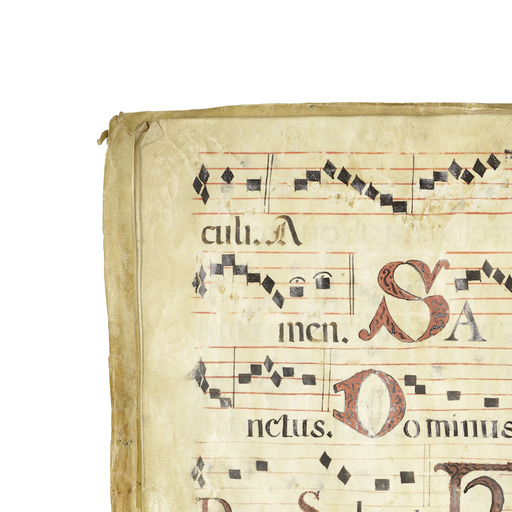 culi. A
men. SA
nctus. Dominus